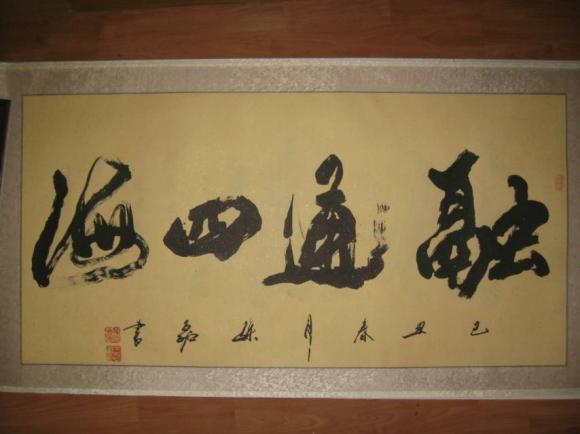 融通四海
己丑春月磊書